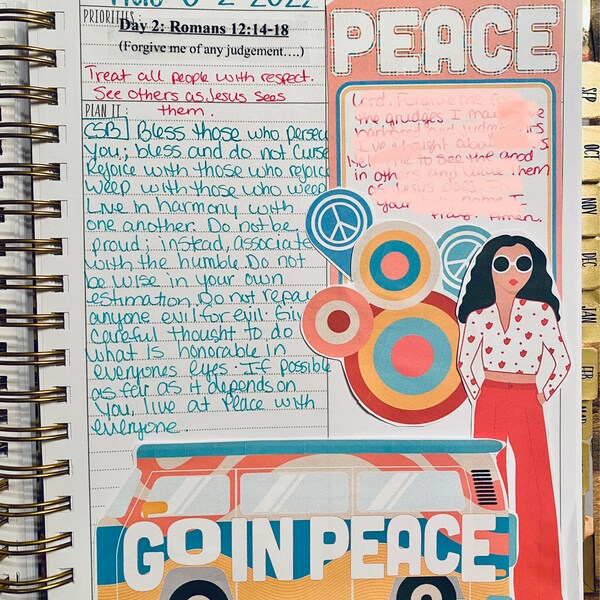 6-2-2022
PRIORITIES:
Day 2: Romans 12:14-18
(Forgive me of any judgement….)
Treat all people with respect.
See others as Jesus sees
them.
PLAN IT:
CSB Bless those who persecu
you; bless and do not curse
Rejoice with those who rejoice
weep with those who weep
Live in harmony with
one another. Do not be
proud; instead, associate
with the humble. Do not
be wise in your own
estimation. Do not repay
anyone evil for evil. Giv
careful thought to do
what is honorable in
everyones eyes. If possible
as far as it depends on
you, live at peace with
everyone.
PEACE
Lord, Forgive me fo
the grudges I ma
harbored and judgem
I've thought abou
me to see the good
in others and them
as Jesus does
your name I
Pray. Amen.
GO IN PEACE
SEP
OCT
NOV
DEC
JAN
FEB
MAR